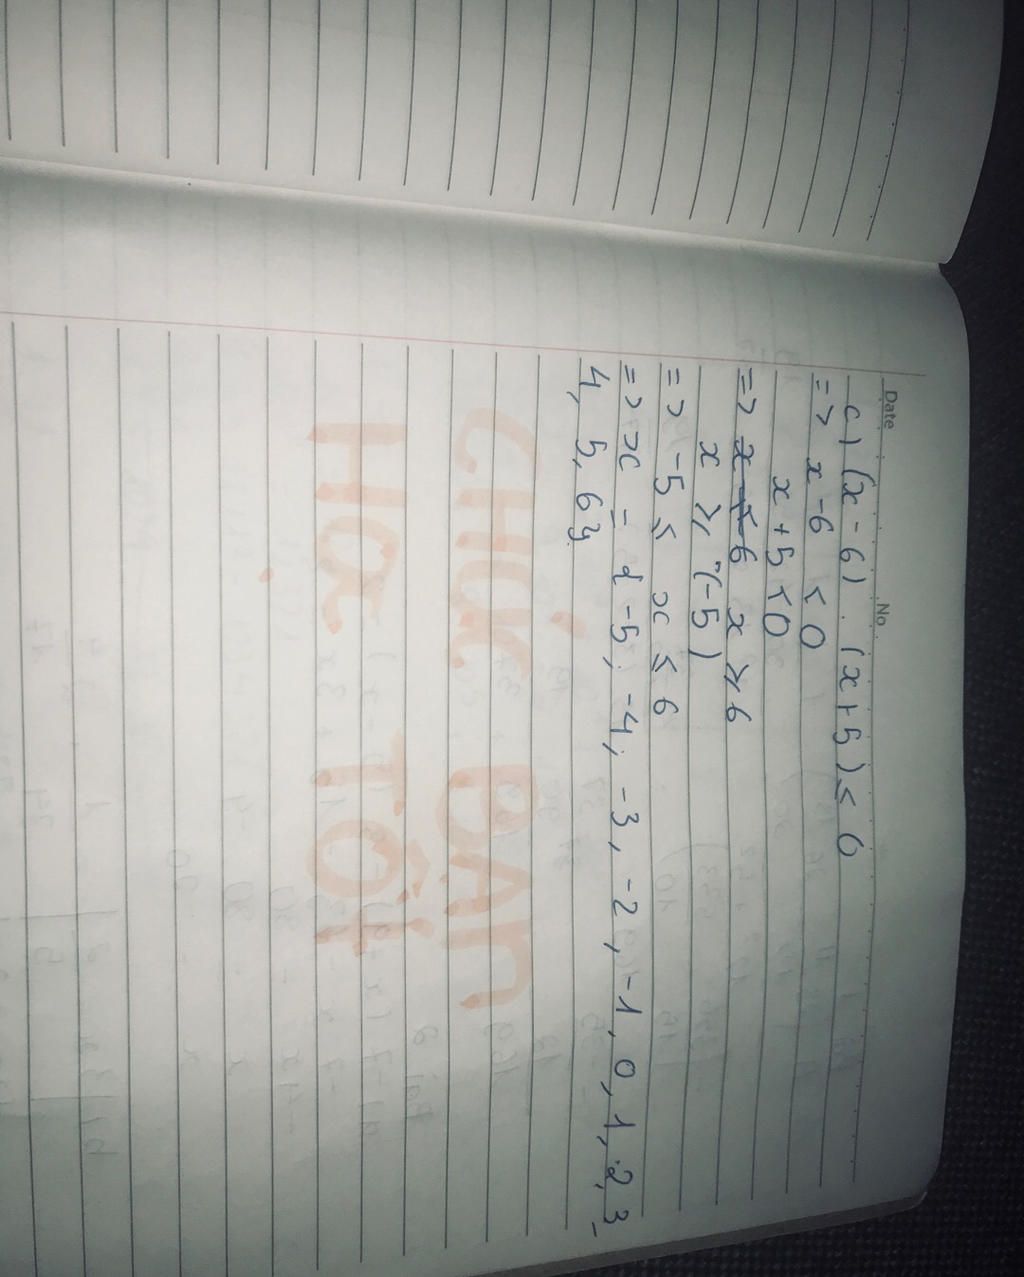 Date
No.
c) (x - 6) . (x + 5) ≤ 0
=> x - 6 < 0
x + 5 < 0
=> x < 6 x ≥ 6
x ≥ (-5)
=> -5 ≤ x ≤ 6
=> x = { -5; -4; -3, -2, -1, 0, 1, 2, 3,
4, 5, 6}
CHÚC BẠN
HỌC TỐT